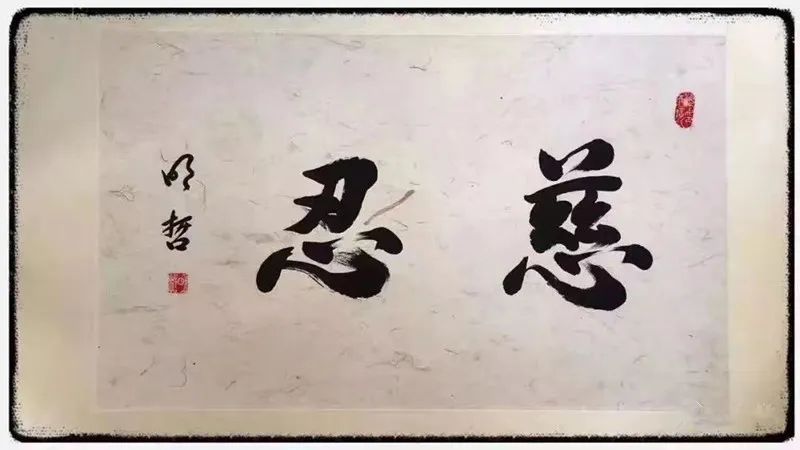 慈忍
明哲